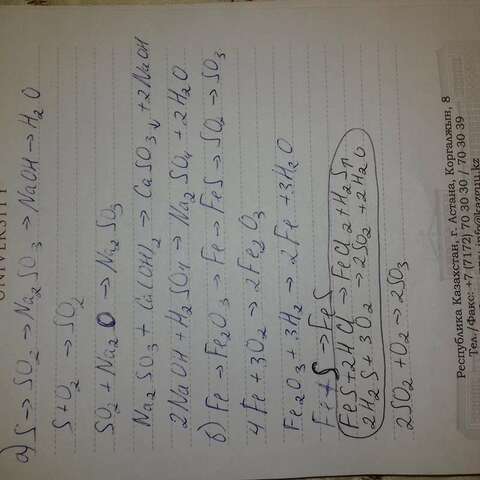 UNIVERSITY
а) S → SO₂ → Na₂SO₃ → NaOH → H₂O
S + O₂ → SO₂
SO₂ + Na₂O → Na₂SO₃
Na₂SO₃ + Ca(OH)₂ → CaSO₃↓ + 2NaOH
2NaOH + H₂SO₄ → Na₂SO₄ + 2H₂O
б) Fe → Fe₂O₃ → Fe → FeS → SO₂ → SO₃
4Fe + 3O₂ → 2Fe₂O₃
Fe₂O₃ + 3H₂ → 2Fe + 3H₂O
Fe + S → FeS
FeS + 2HCl → FeCl₂ + H₂S↑
2H₂S + 3O₂ → 2SO₂ + 2H₂O
2SO₂ + O₂ → 2SO₃
Республика Казахстан, г. Астана, Коргалжын, 8
Тел./Факс: +7 (7172) 70 30 30 / 70 30 39
@kazguu.kz